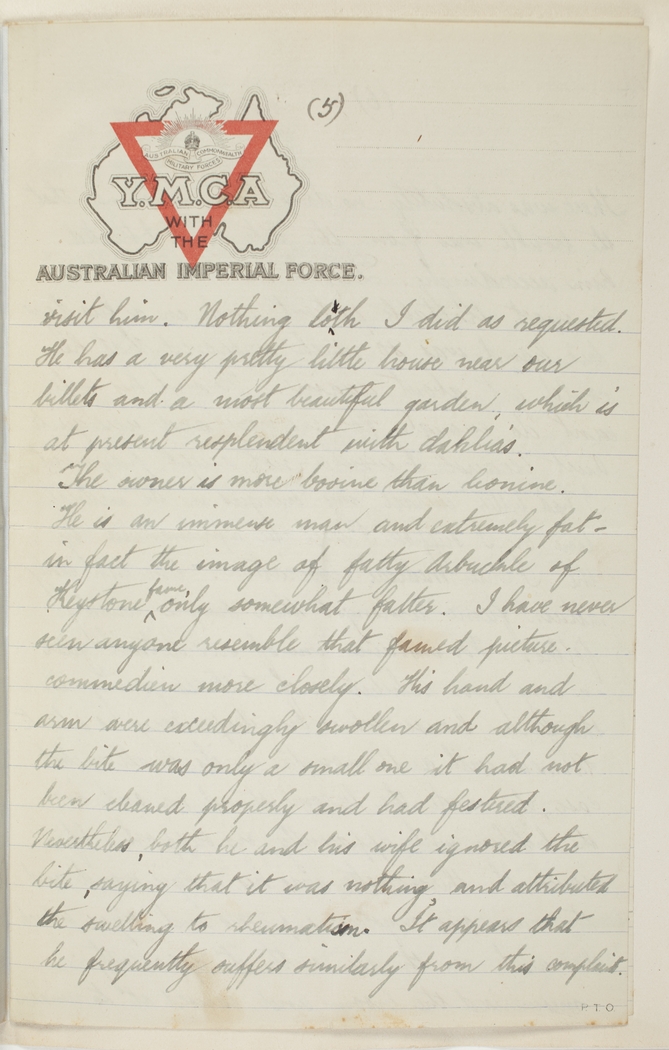 (5)
AUSTRALIAN COMMONWEALTH
MILITARY FORCES
Y.M.C.A
WITH
THE
AUSTRALIAN IMPERIAL FORCE.
visit him. Nothing loth I did as requested.
He has a very pretty little house near our
billets and a most beautiful garden, which is
at present resplendent with dahlias.
The owner is more bovine than leonine.
He is an immense man and extremely fat -
in fact the image of fatty Arbuckle of
Keystone fame, only somewhat fatter. I have never
seen anyone resemble that famed picture
commedien more closely. His hand and
arm were exceedingly swollen and although
the bite was only a small one it had not
been cleaned properly and had festered.
Nevertheless, both he and his wife ignored the
bite, saying that it was nothing and attributed
the swelling to rheumatism. It appears that
he frequently suffers similarly from this complaint.
P T O